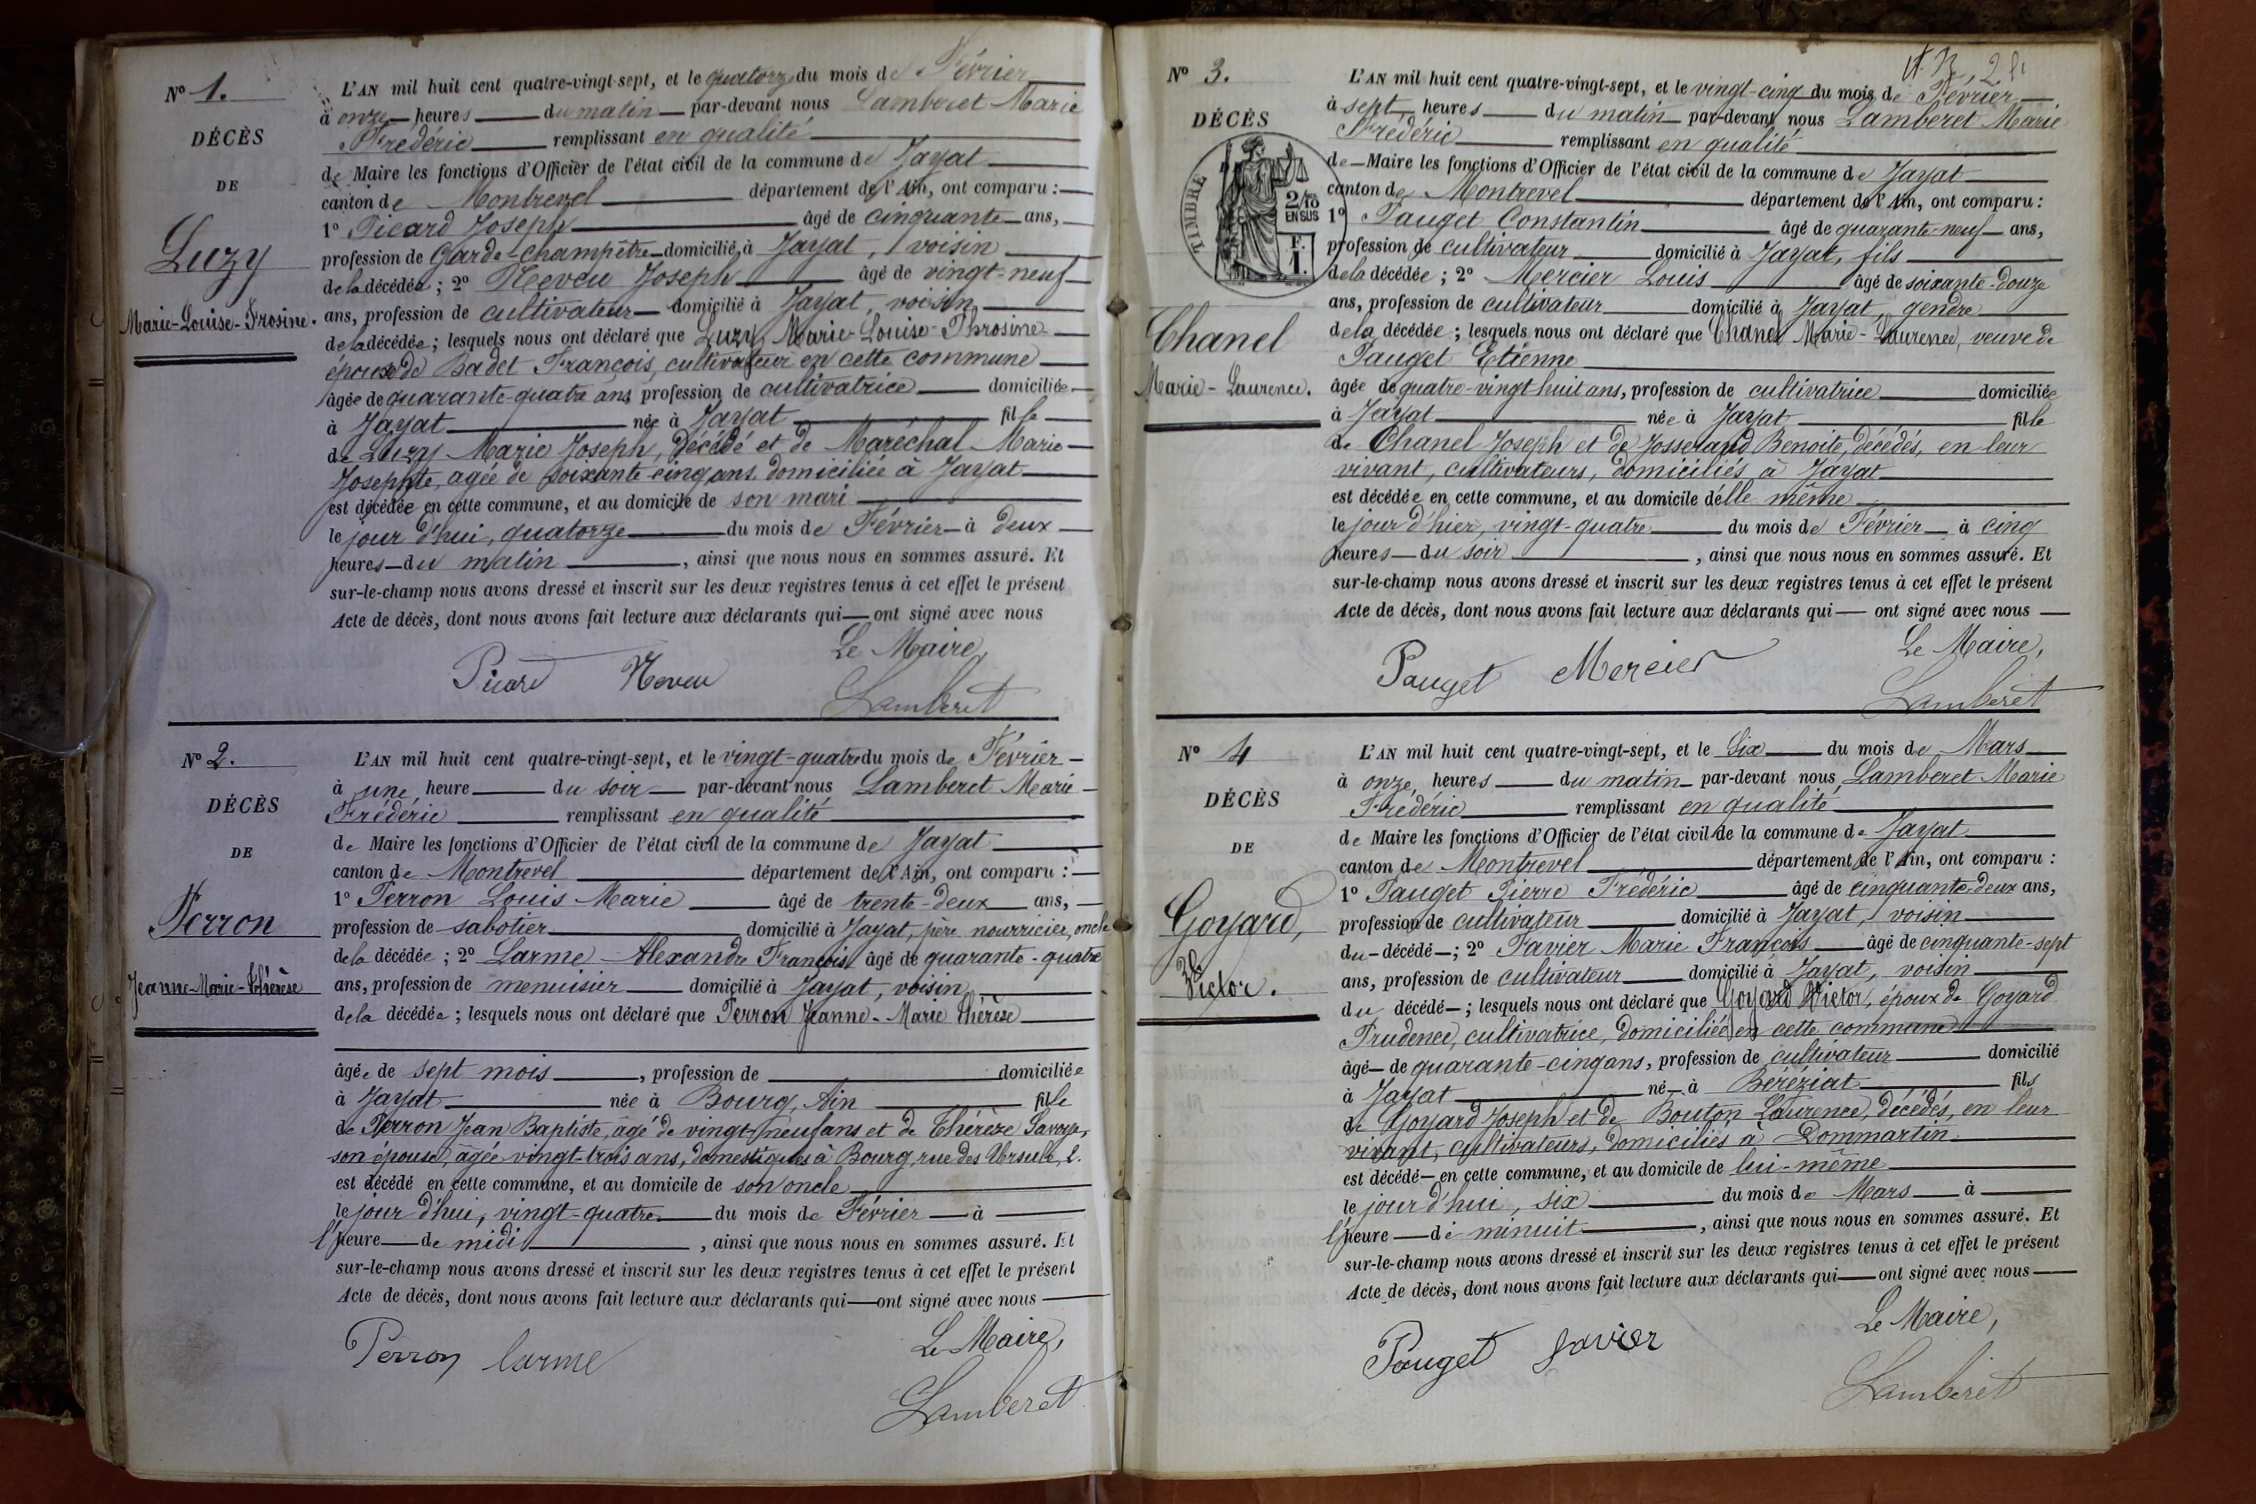 N° 1.
DÉCÈS
DE
Luzy
Marie-Louise-Frosine.
L'AN mil huit cent quatre-vingt-sept, et le quatorze du mois de Février
à onze heures du matin par-devant nous Lamberet Marie
Frédéric remplissant en qualité
de Maire les fonctions d'Officier de l'état civil de la commune de Jayat
canton de Montrevel département de l'Ain, ont comparu :
1° Picard Joseph âgé de cinquante ans,
profession de Garde-champêtre domicilié à Jayat, voisin
de la décédée ; 2° Neveu Joseph âgé de vingt-neuf
ans, profession de cultivateur domicilié à Jayat, voisin
de la décédée ; lesquels nous ont déclaré que Luzy Marie-Louise-Phrosine
épouse de Badet François, cultivateur en cette commune
âgée de quarante-quatre ans profession de cultivatrice domiciliée
à Jayat née à Jayat fille
de Luzy Marie Joseph, décédé et de Maréchal Marie
Josephte, agée de soixante-cinq ans domiciliée à Jayat
est décédée en cette commune, et au domicile de son mari
le jour d'hui, quatorze du mois de Février à deux
heures du matin, ainsi que nous nous en sommes assuré. Et
sur-le-champ nous avons dressé et inscrit sur les deux registres tenus à cet effet le présent
Acte de décès, dont nous avons fait lecture aux déclarants qui ont signé avec nous
Le Maire,
Picard Neveu
Lamberet
N° 2.
DÉCÈS
DE
Perron
Jeanne-Marie-Thérèse
L'AN mil huit cent quatre-vingt-sept, et le vingt-quatre du mois de Février
à une heure du soir par-devant nous Lamberet Marie
Frédéric remplissant en qualité
de Maire les fonctions d'Officier de l'état civil de la commune de Jayat
canton de Montrevel département de l'Ain, ont comparu :
1° Perron Louis Marie âgé de trente-deux ans,
profession de sabotier domicilié à Jayat, père nourricier, oncle
de la décédée ; 2° Larme Alexandre François âgé de quarante-quatre
ans, profession de menuisier domicilié à Jayat, voisin
de la décédée ; lesquels nous ont déclaré que Perron Jeanne-Marie Thérèse
âgée de sept mois, profession de domiciliée
à Jayat née à Bourg, Ain fille
de Perron Jean Baptiste, âgé de vingt-neuf ans et de Thérèze Savoye,
son épouse, âgée vingt-trois ans, domestiques à Bourg, rue des Ursule, 2.
est décédé en cette commune, et au domicile de son oncle
le jour d'hui, vingt-quatre du mois de Février à
l'heure de midi, ainsi que nous nous en sommes assuré. Et
sur-le-champ nous avons dressé et inscrit sur les deux registres tenus à cet effet le présent
Acte de décès, dont nous avons fait lecture aux déclarants qui ont signé avec nous
Le Maire,
Perron Larme
Lamberet
N° 3.
DÉCÈS
TIMBRE
2/10
EN SUS
F.
1.
Chanel
Marie-Laurence.
L'AN mil huit cent quatre-vingt-sept, et le vingt-cinq du mois de Février
à sept heures du matin par-devant nous Lamberet Marie
Frédéric remplissant en qualité
de Maire les fonctions d'Officier de l'état civil de la commune de Jayat
canton de Montrevel département de l'Ain, ont comparu :
1° Pauget Constantin âgé de quarante-neuf ans,
profession de cultivateur domicilié à Jayat, fils
de la décédée ; 2° Mercier Louis âgé de soixante-douze
ans, profession de cultivateur domicilié à Jayat, gendre
de la décédée ; lesquels nous ont déclaré que Chanel Marie-Laurence, veuve de
Pauget Etienne
âgée de quatre-vingt-huit ans, profession de cultivatrice domiciliée
à Jayat née à Jayat fille
de Chanel Joseph et de Josserand Benoite, décédés, en leur
vivant, cultivateurs, domiciliés à Jayat
est décédée en cette commune, et au domicile d'elle même
le jour d'hier, vingt-quatre du mois de Février à cinq
heures du soir, ainsi que nous nous en sommes assuré. Et
sur-le-champ nous avons dressé et inscrit sur les deux registres tenus à cet effet le présent
Acte de décès, dont nous avons fait lecture aux déclarants qui ont signé avec nous
Le Maire,
Pauget Mercier
Lamberet
N° 4
DÉCÈS
DE
Goyard,
Victor.
L'AN mil huit cent quatre-vingt-sept, et le Six du mois de Mars
à onze heures du matin par-devant nous Lamberet Marie
Frédéric remplissant en qualité
de Maire les fonctions d'Officier de l'état civil de la commune de Jayat
canton de Montrevel département de l'Ain, ont comparu :
1° Pauget Pierre Frédéric âgé de cinquante-deux ans,
profession de cultivateur domicilié à Jayat, voisin
du décédé ; 2° Favier Marie François âgé de cinquante-sept
ans, profession de cultivateur domicilié à Jayat, voisin
du décédé ; lesquels nous ont déclaré que Goyard Victor, époux de Goyard
Prudence, cultivatrice, domiciliée en cette commune
âgé de quarante-cinq ans, profession de cultivateur domicilié
à Jayat né à Béréziat fils
de Goyard Joseph et de Bouton Laurence, décédés, en leur
vivant, cultivateurs, domiciliés à Dommartin
est décédé en cette commune, et au domicile de lui-même
le jour d'hui, six du mois de Mars à
l'heure de minuit, ainsi que nous nous en sommes assuré. Et
sur-le-champ nous avons dressé et inscrit sur les deux registres tenus à cet effet le présent
Acte de décès, dont nous avons fait lecture aux déclarants qui ont signé avec nous
Le Maire,
Pauget favier
Lamberet